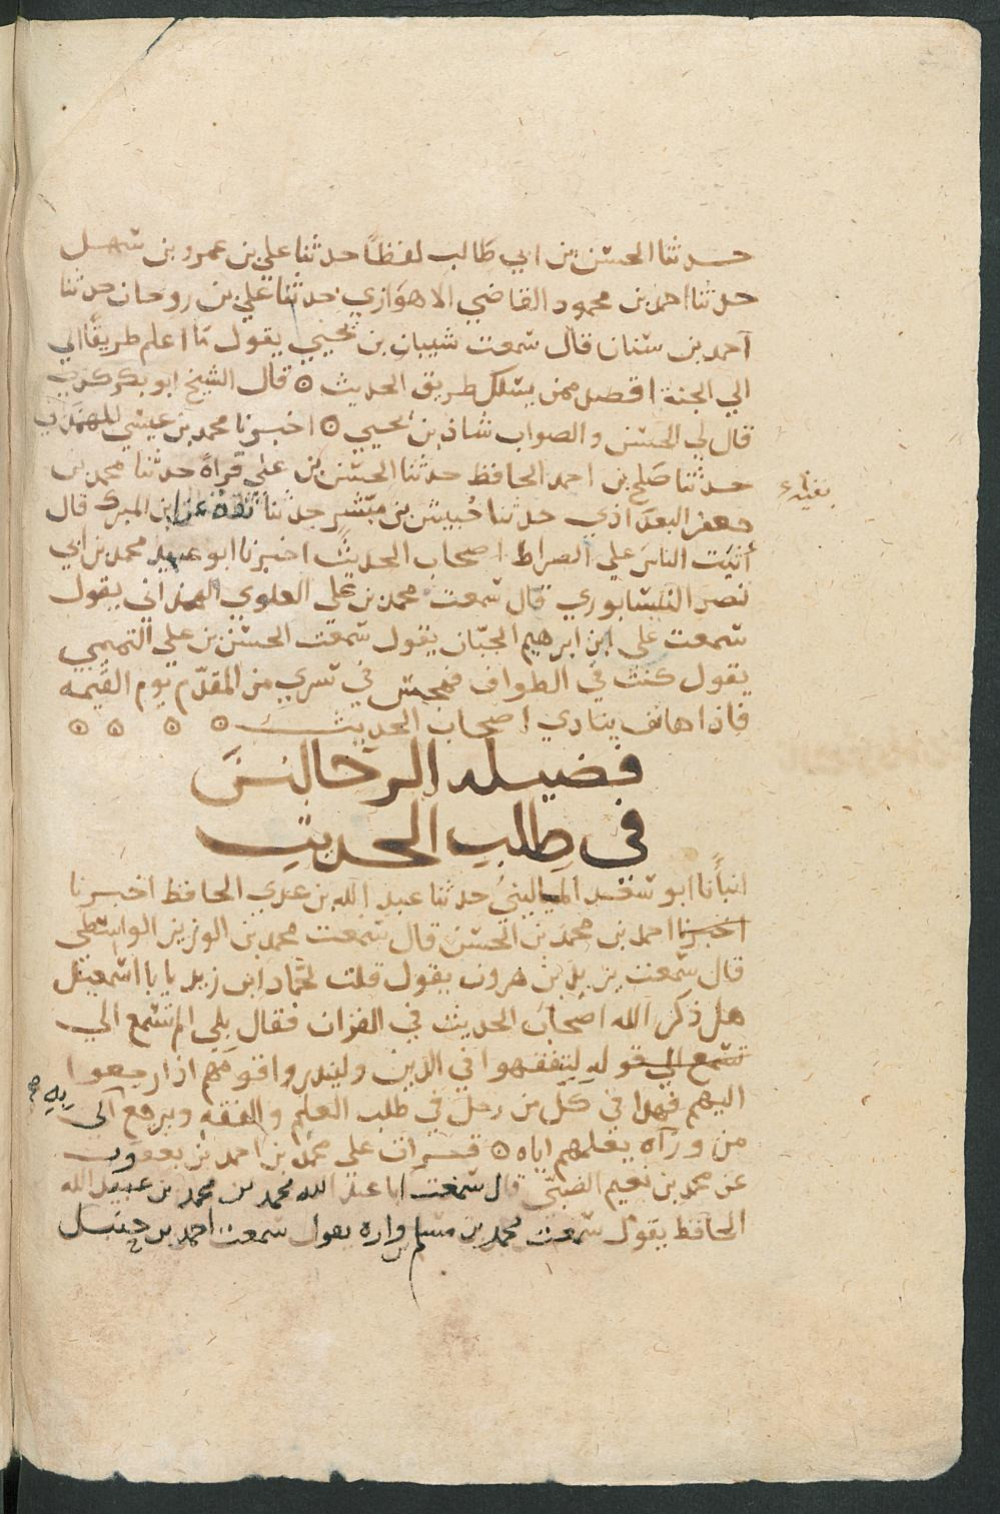 حدثنا الحسن بن ابي طالب لفظًا حدثنا علي بن عمرو بن سهل
حدثنا احمد بن محمود القاضي الاهوازي حدثنا علي بن روحان حدثنا
أحمد بن سنان قال سمعت شيبان بن يحيي يقول ما اعلم طريقًا الي
الي الجنة اقصد ممن يسلك طريق الحديث ه قال الشيخ ابو بكر كذي
قال لي الحسن والصواب شاذ بن يحيي ه اخبرنا محمد بن عيسي الهمذاني
حدثنا صلح بن احمد الحافظ حدثنا الحسن بن علي قراة حدثنا محمد بن
جعفر البغداذي حدثنا حُبيش بن مبشر حدثنا ثقة عن ابن المبرك قال
أثبت الناس علي الصراط اصحاب الحديث اخبرنا ابو عبيد محمد بن ابي
نصر النيسابوري قال سمعت محمد بن علي العلوي الهمذاني يقول
سمعت علي ابن ابرهيم الجبان يقول سمعت الحسن بن علي التميمي
يقول كنت في الطواف فهجس في سري من المقدم يوم القيمه
فاذا هاتف ينادي اصحاب الحديث ه ه ه ه
فضيله الرحالين
في طلب الحديث
انبأنا ابو سعد الماليني حدثنا عبد الله بن عدي الحافظ اخبرنا
اخبرنا احمد بن محمد بن الحسن قال سمعت محمد بن الوزير الواسطي
قال سمعت يزيد بن هرون يقول قلت لحماد ابن زيد يا با اسمعيل
هل ذكر الله اصحاب الحديث في القران فقال بلي الم تسمع الي
تسمع الي قوله ليتفقهوا في الدين ولينذروا قومهم اذا رجعوا
اليهم فهذا في كل من رحل في طلب العلم والفقه ويرجع الى
من ورآه يعلمهم اياه ه قرات علي محمد بن احمد بن يعقوب
عن محمد بن نعيم الضبي قال سمعت ابا عبد الله محمد بن محمد بن عبيد الله
الحافظ يقول سمعت محمد بن مسلم بن واره يقول سمعت احمد بن حنبل